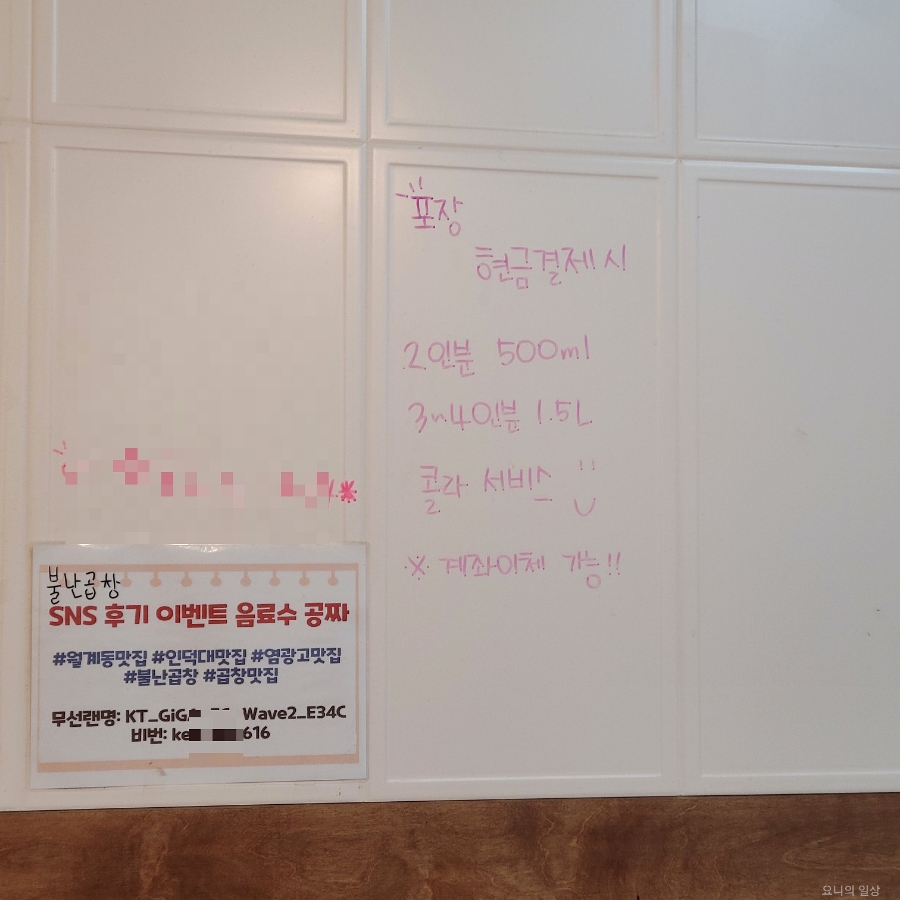 포장
현금결제 시
2인분 500ml
3~4인분 1.5L
콜라 서비스
※ 계좌이체 가능!!
불난곱창
SNS 후기 이벤트 음료수 공짜
#월계동맛집 #인덕대맛집 #염광고맛집
#불난곱창 #곱창맛집
무선랜명: KT_GiGA Wave2_E34C
비번: ke 616
요니의 일상